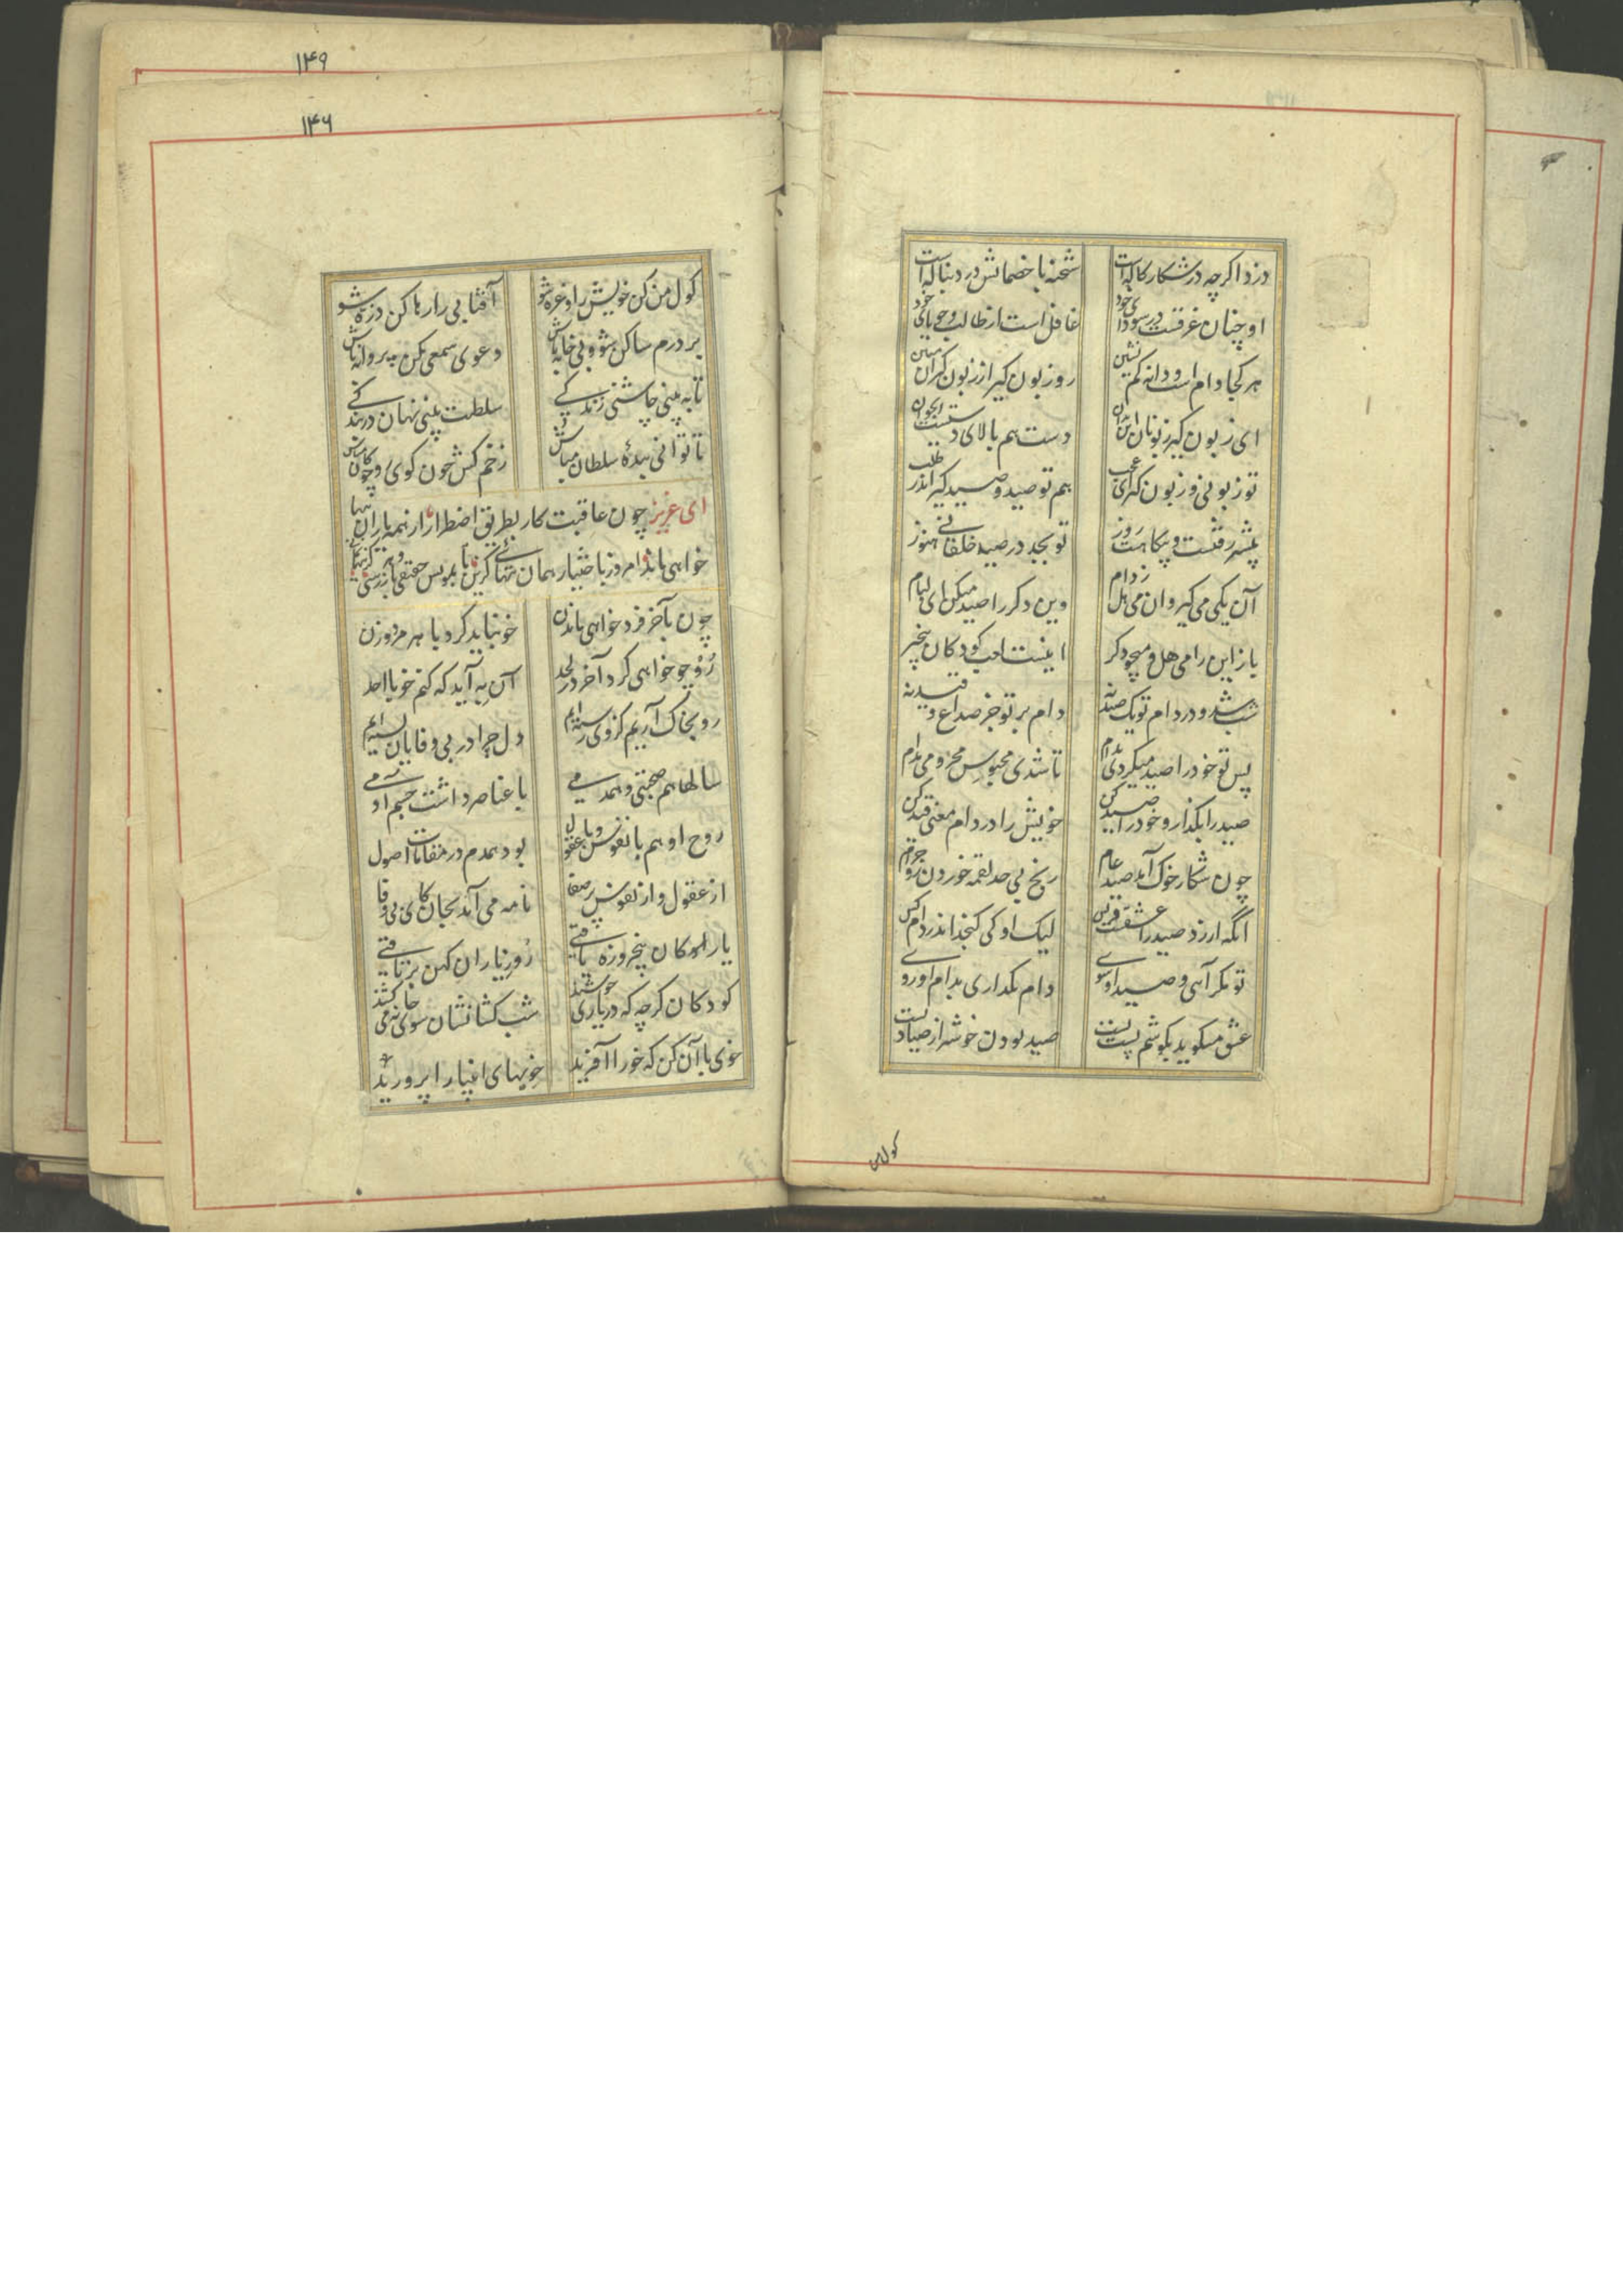 دزد اکرچه در شکار کاله است شحنه با خصمانش در دنباله است
او چنان غرقست در سودای خود غافل است از طالب و جویای خود
هر کجا دام است و دانه کم نشین رو زبون کیر از زبون کیران ببین
ای زبون کیر زبونان این بدان دست هم بالای دستست ایجوان
تو زبونی و زبون کیر ای عجب هم تو صید و صید کیر اندر طلب
بیشتر رفتست و بیکاهست روز تو بجد در صید خلقانی هنوز
آن یکی می کیر و ان می هل ز دام وین دکر را صید میکن ای لیام
باز این را می هل و میجو دکر اینست لعب کودکان بیخبر
شب شود در دام تو یک صید نه دام بر تو جز صداع و قید نه
پس تو خود را صید میکردی بدام تا شدی محبوس محرومی مدام
صید را بکذار و خود را صید کن خویش را در دام معنی قید کن
چون شکار خوک آمد صید عام رنج بی حد لقمه خوردن زو حرام
انگه ارزد صید را عشقست و بس لیک او کی کنجد اندر دام کس
تو مکر آئی و صید او شوی دام بکذاری بدام او روی
عشق میکوید بکوشم پست پست صید بودن خوشتر از صیادیست
کول من
۱۴۹
۱۴۶
کول من کن خویش را و غره شو آفتابی را رها کن ذره شو
بر درم ساکن شو و بی خانه باش دعوی شمعی مکن پروانه باش
تا به بینی چاشنی زندکی سلطنت بینی نهان در بندکی
تا توانی بندهٔ سلطان مباش زخم کش چون کوی و چوکان مباش
ای عزیز چون عاقبت کار بطریق اضطرار از همه یاران تنها
خواهی ماند امروز باختیار همان تنهائی کزین تا بمونس حقیقی باز رسی
چون بآخر فرد خواهی ماندن خو نباید کرد با هر مرد و زن
رو چو خواهی کرد آخر در لحد آن به آید که کنم خو با احد
رو بخاک آریم کز وی رسته ایم دل چرا در بی وفایان بسته ایم
سالها هم صحبتی و همدمی با عناصر داشت جسم آدمی
روح او هم با نفوس و با عقول بود همدم در مقامات اصول
از عقول و از نفوس پر صفا نامه می آید بجان کای بی وفا
یارکان پنج روزه یافتی رو ز یاران کهن بر تافتی
کودکان کرچه که در بازی خوشند شب کشانشان سوی خانه می کشند
خوی با آن کن که خو را آفرید خویهای انبیا را پرورید